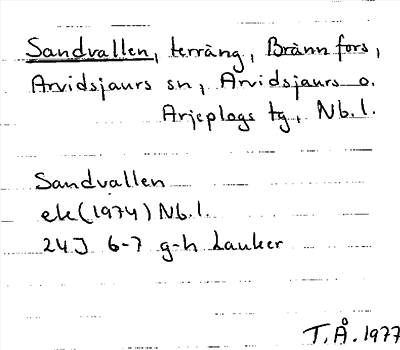 Sandvallen, terräng, Brännfors,
Arvidsjaurs sn, Arvidsjaurs o.
Arjeplogs tg, Nb.l.
Sandvallen
ek (1974) Nb.l.
24J 6-7 g-h Lauker
T.Å. 1977